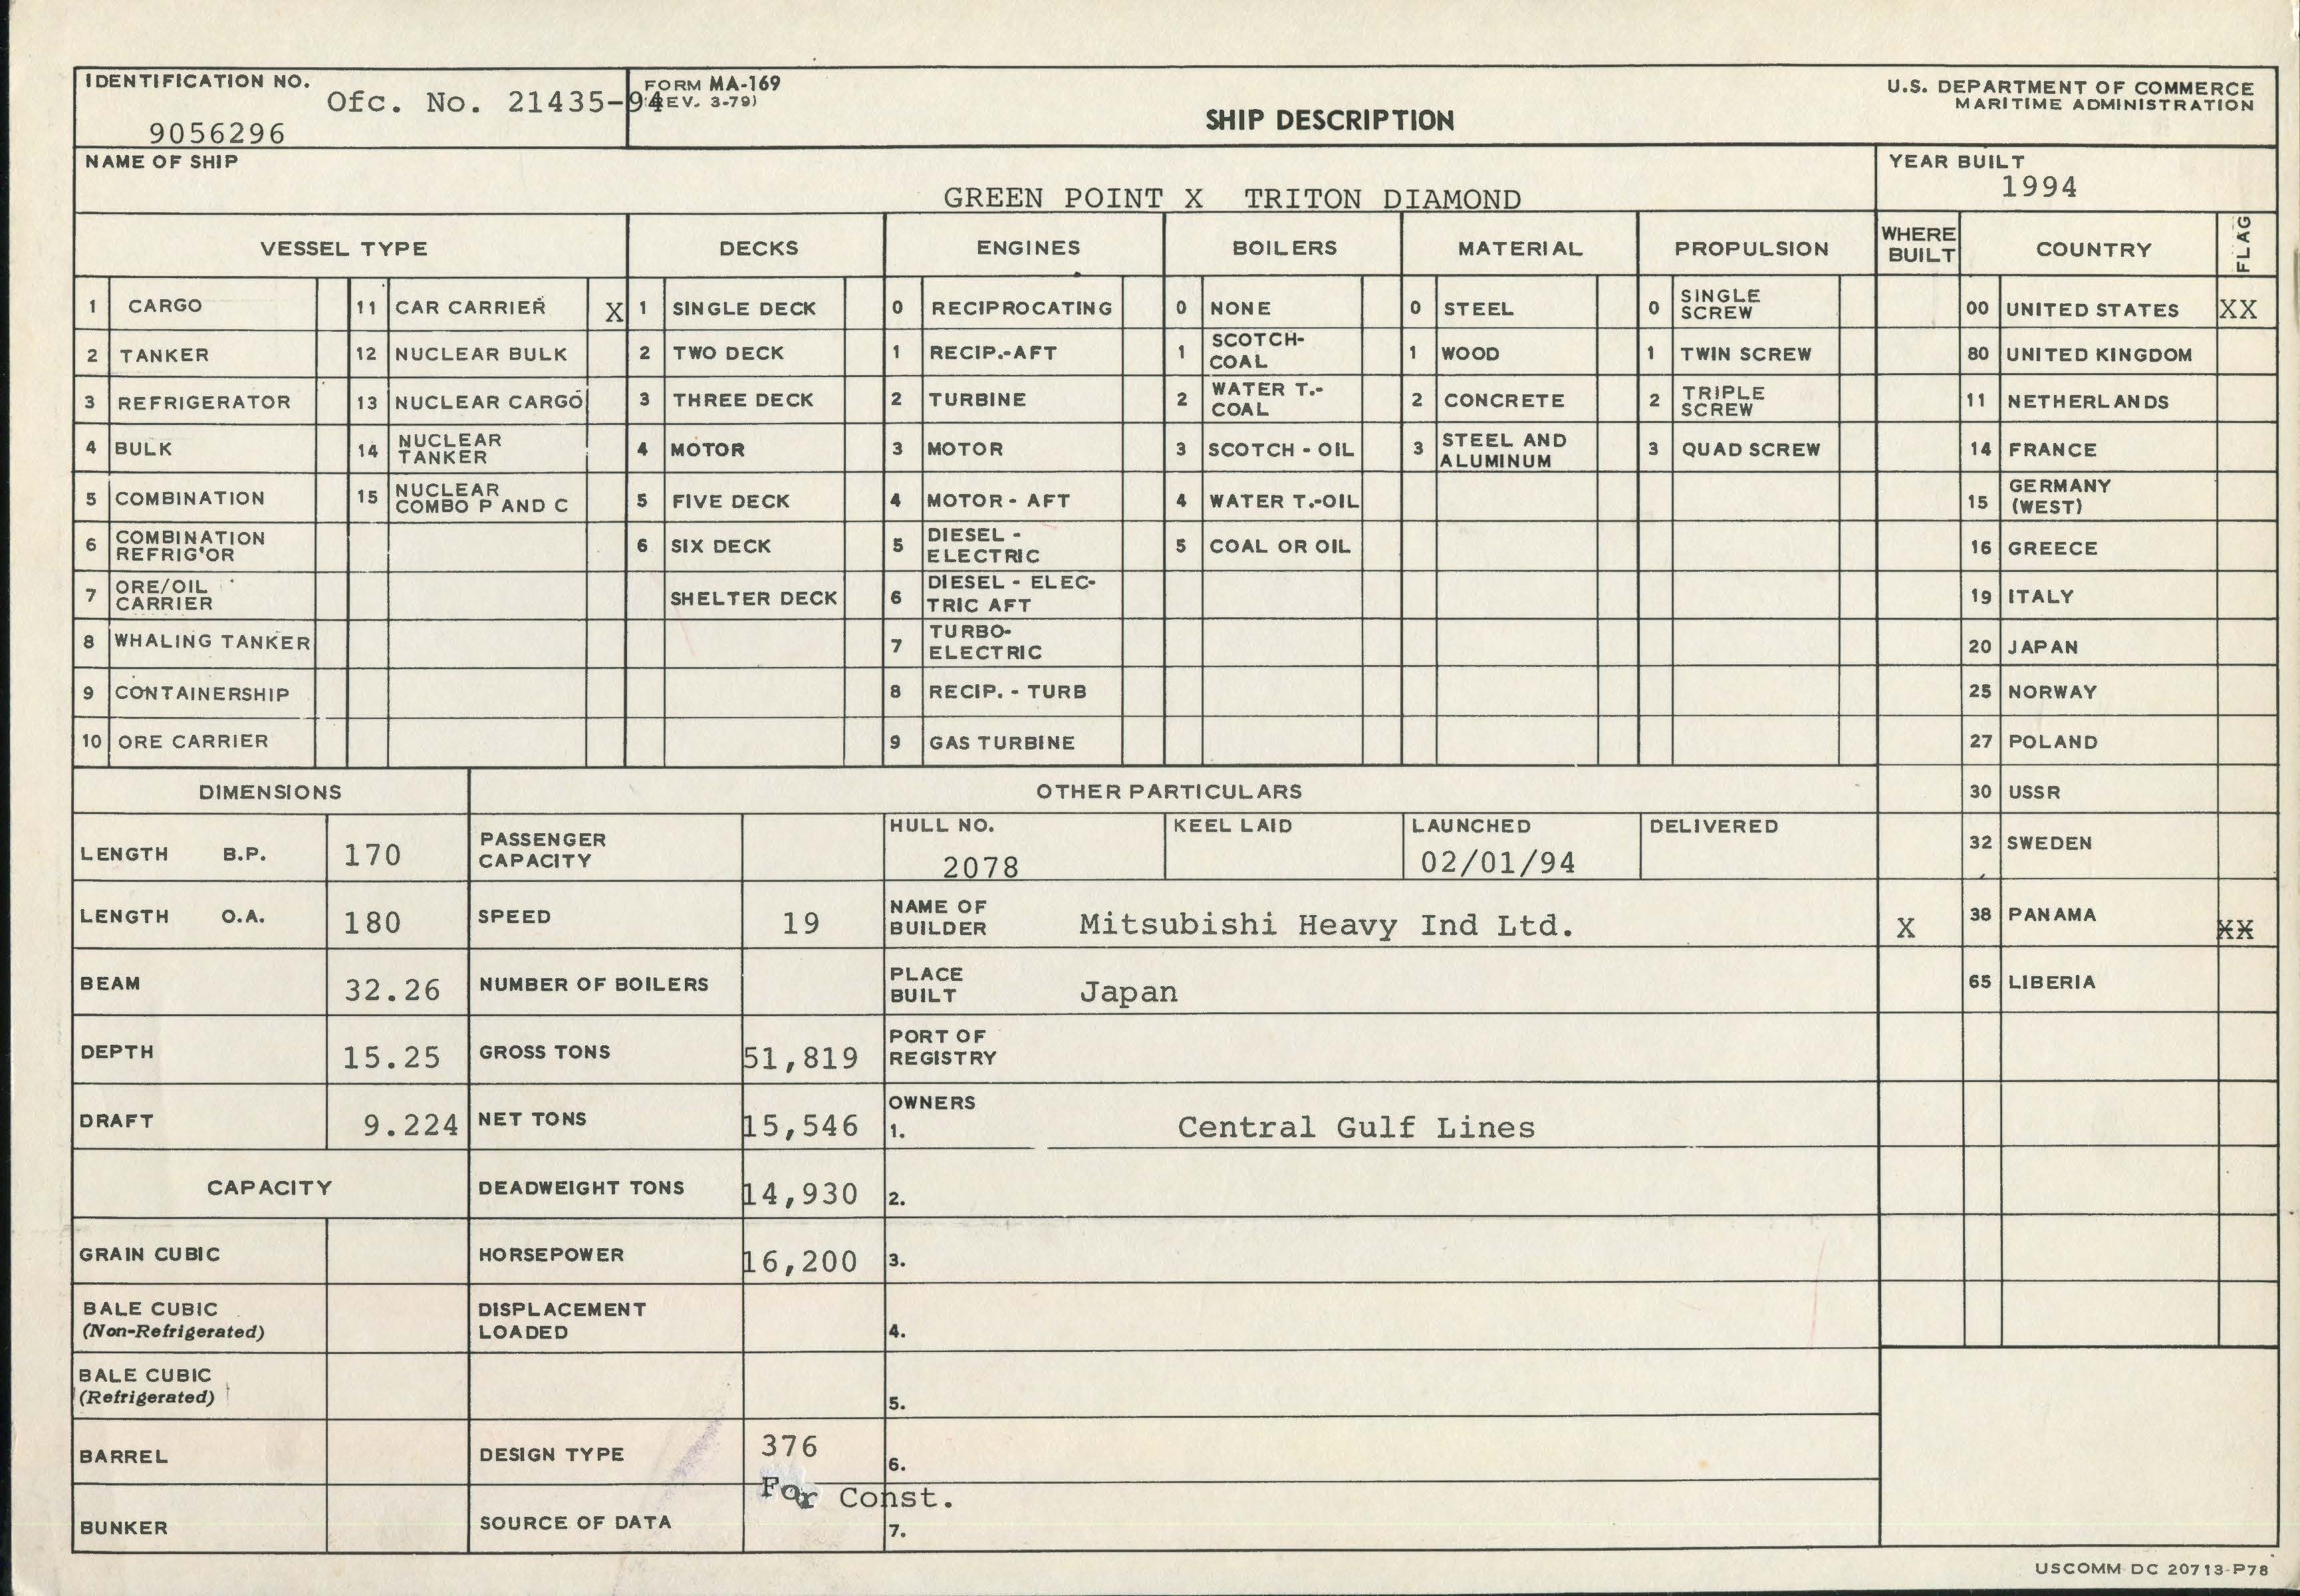 IDENTIFICATION NO.
Ofc. No. 21435-94
9056296
FORM MA-169
(REV. 3-79)
SHIP DESCRIPTION
U.S. DEPARTMENT OF COMMERCE
MARITIME ADMINISTRATION
NAME OF SHIP
GREEN POINT X TRITON DIAMOND
YEAR BUILT
1994
VESSEL TYPE DECKS ENGINES BOILERS MATERIAL PROPULSION WHERE BUILT COUNTRY FLAG
1 CARGO 11 CAR CARRIER X 1 SINGLE DECK 0 RECIPROCATING 0 NONE 0 STEEL 0 SINGLE SCREW 00 UNITED STATES XX
2 TANKER 12 NUCLEAR BULK 2 TWO DECK 1 RECIP.-AFT 1 SCOTCH-COAL 1 WOOD 1 TWIN SCREW 80 UNITED KINGDOM
3 REFRIGERATOR 13 NUCLEAR CARGO 3 THREE DECK 2 TURBINE 2 WATER T.-COAL 2 CONCRETE 2 TRIPLE SCREW 11 NETHERLANDS
4 BULK 14 NUCLEAR TANKER 4 MOTOR 3 MOTOR 3 SCOTCH - OIL 3 STEEL AND ALUMINUM 3 QUAD SCREW 14 FRANCE
5 COMBINATION 15 NUCLEAR COMBO P AND C 5 FIVE DECK 4 MOTOR - AFT 4 WATER T.-OIL 15 GERMANY (WEST)
6 COMBINATION REFRIG'OR 6 SIX DECK 5 DIESEL - ELECTRIC 5 COAL OR OIL 16 GREECE
7 ORE/OIL CARRIER SHELTER DECK 6 DIESEL - ELECTRIC AFT 19 ITALY
8 WHALING TANKER 7 TURBO-ELECTRIC 20 JAPAN
9 CONTAINERSHIP 8 RECIP. - TURB 25 NORWAY
10 ORE CARRIER 9 GAS TURBINE 27 POLAND
DIMENSIONS OTHER PARTICULARS 30 USSR
LENGTH B.P. 170 PASSENGER CAPACITY HULL NO. 2078 KEEL LAID LAUNCHED 02/01/94 DELIVERED 32 SWEDEN
LENGTH O.A. 180 SPEED 19 NAME OF BUILDER Mitsubishi Heavy Ind Ltd. X 38 PANAMA XX
BEAM 32.26 NUMBER OF BOILERS PLACE BUILT Japan 65 LIBERIA
DEPTH 15.25 GROSS TONS 51,819 PORT OF REGISTRY
DRAFT 9.224 NET TONS 15,546 OWNERS 1. Central Gulf Lines
CAPACITY DEADWEIGHT TONS 14,930 2.
GRAIN CUBIC HORSEPOWER 16,200 3.
BALE CUBIC (Non-Refrigerated) DISPLACEMENT LOADED 4.
BALE CUBIC (Refrigerated) 5.
BARREL DESIGN TYPE 376 6.
For Const.
BUNKER SOURCE OF DATA 7.
USCOMM-DC 20713-P78